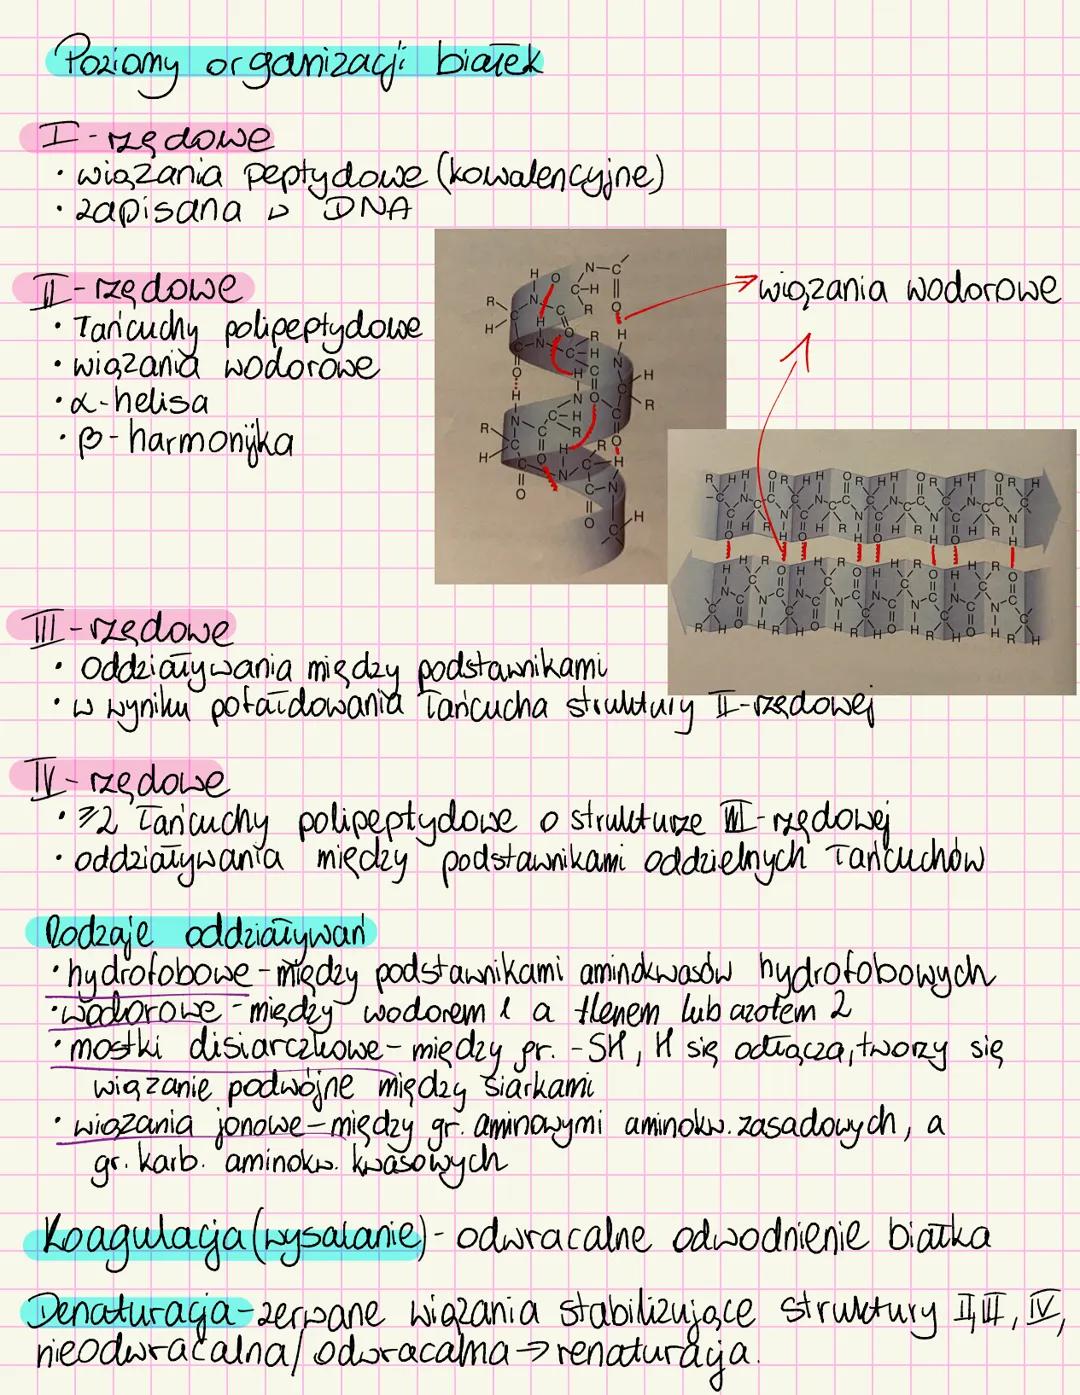 Poziomy organizacji białek
I-rzędowe
• wiązania peptydowe (kowalencyjne)
• zapisana w DNA
II-rzędowe
• łańcuchy polipeptydowe
• wiązania wodorowe
• α-helisa
• β-harmonijka
wiązania wodorowe
III-rzędowe
• oddziaływania między podstawnikami
• w wyniku pofałdowania łańcucha struktury II-rzędowej
IV-rzędowe
• ≥2 łańcuchy polipeptydowe o strukturze III-rzędowej
• oddziaływania między podstawnikami oddzielnych łańcuchów
Rodzaje oddziaływań
• hydrofobowe - między podstawnikami aminokwasów hydrofobowych
• wodorowe - między wodorem 1 a tlenem lub azotem 2
• mostki disiarczkowe - między gr. -SH, H się odłącza, tworzy się
wiązanie podwójne między siarkami
• wiązania jonowe - między gr. aminowymi aminokw. zasadowych, a
gr. karb. aminokw. kwasowych
Koagulacja (wysalanie) - odwracalne odwodnienie białka
Denaturacja - zerwane wiązania stabilizujące struktury II, III, IV,
nieodwracalna/odwracalna → renaturacja.